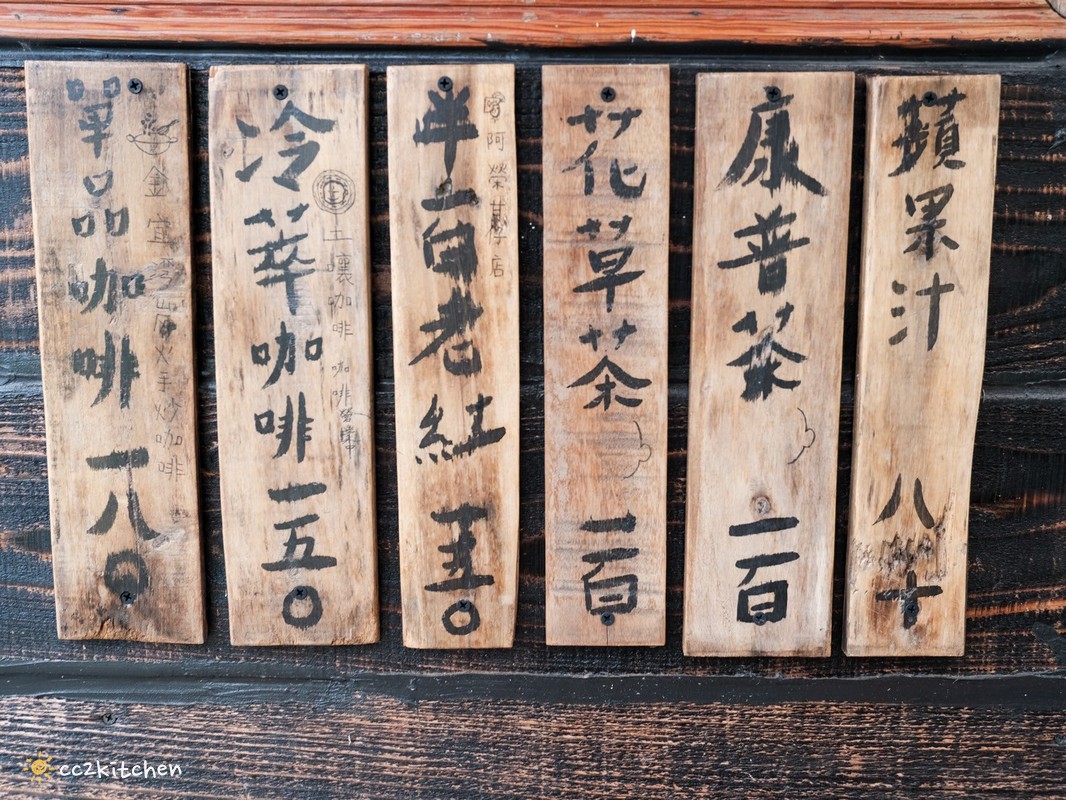 蘋果汁 八十
康普茶 一百
花草茶 一百
老紅 一五〇
阿榮 店
冷萃咖啡 一五〇
土壤咖啡 咖啡
單品咖啡 一八〇
手炒咖啡
cc2kitchen